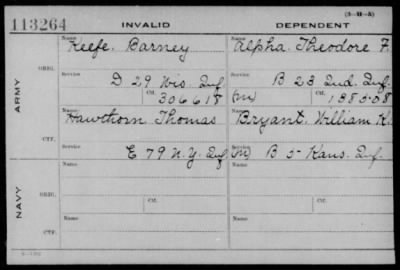 (3-H-A)
113264 INVALID DEPENDENT
ARMY
NAVY
ORIG.
Name Keefe, Barney Name Alpha, Theodore F.
Service D 29 Wis Inf Service B 23 Ind. Inf.
Ctf. 306618 (m) Ctf. 1385-08
CTF.
Name Hawthorn Thomas Name Bryant, William H.
E 79 N.Y. Inf. (m) B 5 Kans. Inf.
ORIG.
Name Name
Service Ctf. Service Ctf.
CTF.
Name Name